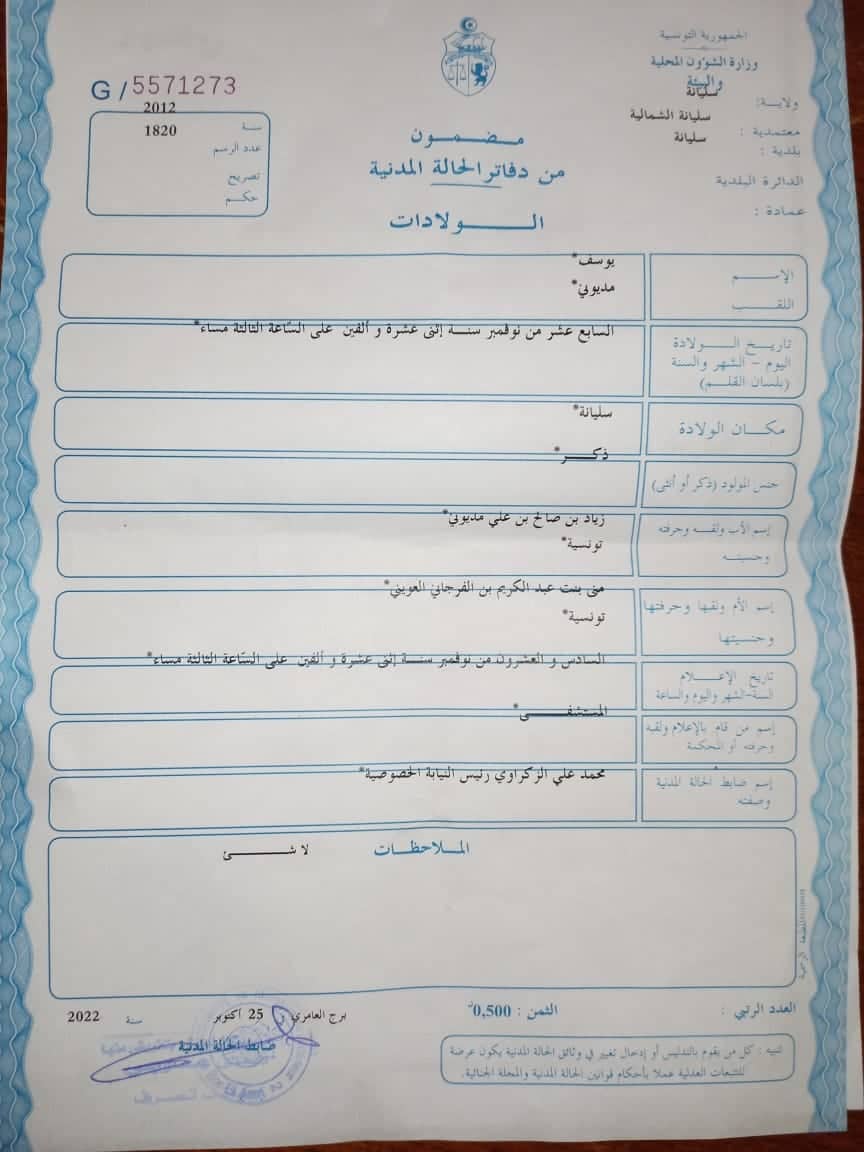 الجمهورية التونسية
وزارة الشؤون المحلية
والبيئة
ولاية: سليانة
معتمدية : سليانة الشمالية
بلدية : سليانة
الدائرة البلدية
عمادة :
G / 5571273
سنة 2012
عدد الرسم 1820
تصريح
حكم
مضمون
من دفاتر الحالة المدنية
الولادات
الإسم يوسف*
اللقب مديوني*
تاريخ الولادة
اليوم - الشهر والسنة
(بلسان القلم)
السابع عشر من نوفمبر سنة إثنى عشرة و ألفين على الساعة الثالثة مساء*
مكان الولادة سليانة*
جنس المولود (ذكر أو أنثى) ذكر*
إسم الأب ولقبه وحرفته زياد بن صالح بن علي مديوني*
وجنسيته تونسية*
إسم الأم ولقبها وحرفتها منى بنت عبد الكريم بن الفرجاني العويني*
وجنسيتها تونسية*
تاريخ الإعلام
السنة-الشهر واليوم والساعة
السادس و العشرون من نوفمبر سنة إثنى عشرة و ألفين على الساعة الثالثة مساء*
إسم من قام بالإعلام ولقبه
وحرفته أو المحكمة
المستشفى*
إسم ضابط الحالة المدنية
وصفته
محمد علي الزكراوي رئيس النيابة الخصوصية*
الملاحظات
لا شئ
العدد الرتبي :
الثمن : 0,500د
برج العامري في 25 أكتوبر سنة 2022
ضابط الحالة المدنية
تنبيه : كل من يقوم بالتدليس أو إدخال تغيير في وثائق الحالة المدنية يكون عرضة
للتتبعات العدلية عملا بأحكام قوانين الحالة المدنية والمجلة الجنائية.